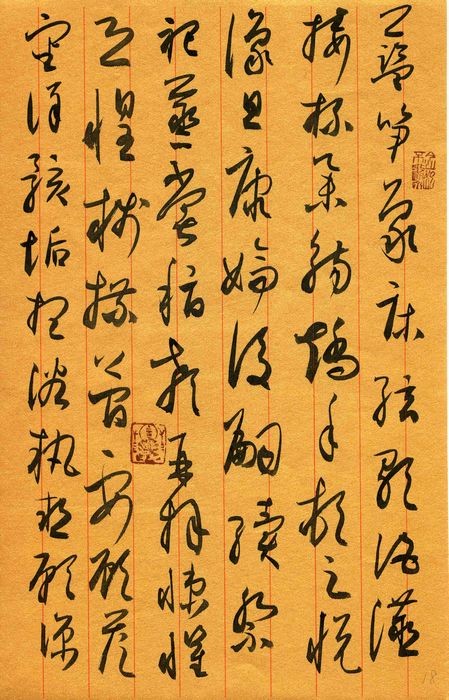 藍笋象床弦歌酒讌
接杯舉觴矯手頓足悅
豫且康嫡後嗣續祭
祀蒸嘗稽顙再拜悚懼
恐惶牋牒簡要顧答
審詳骸垢想浴執熱願涼
18